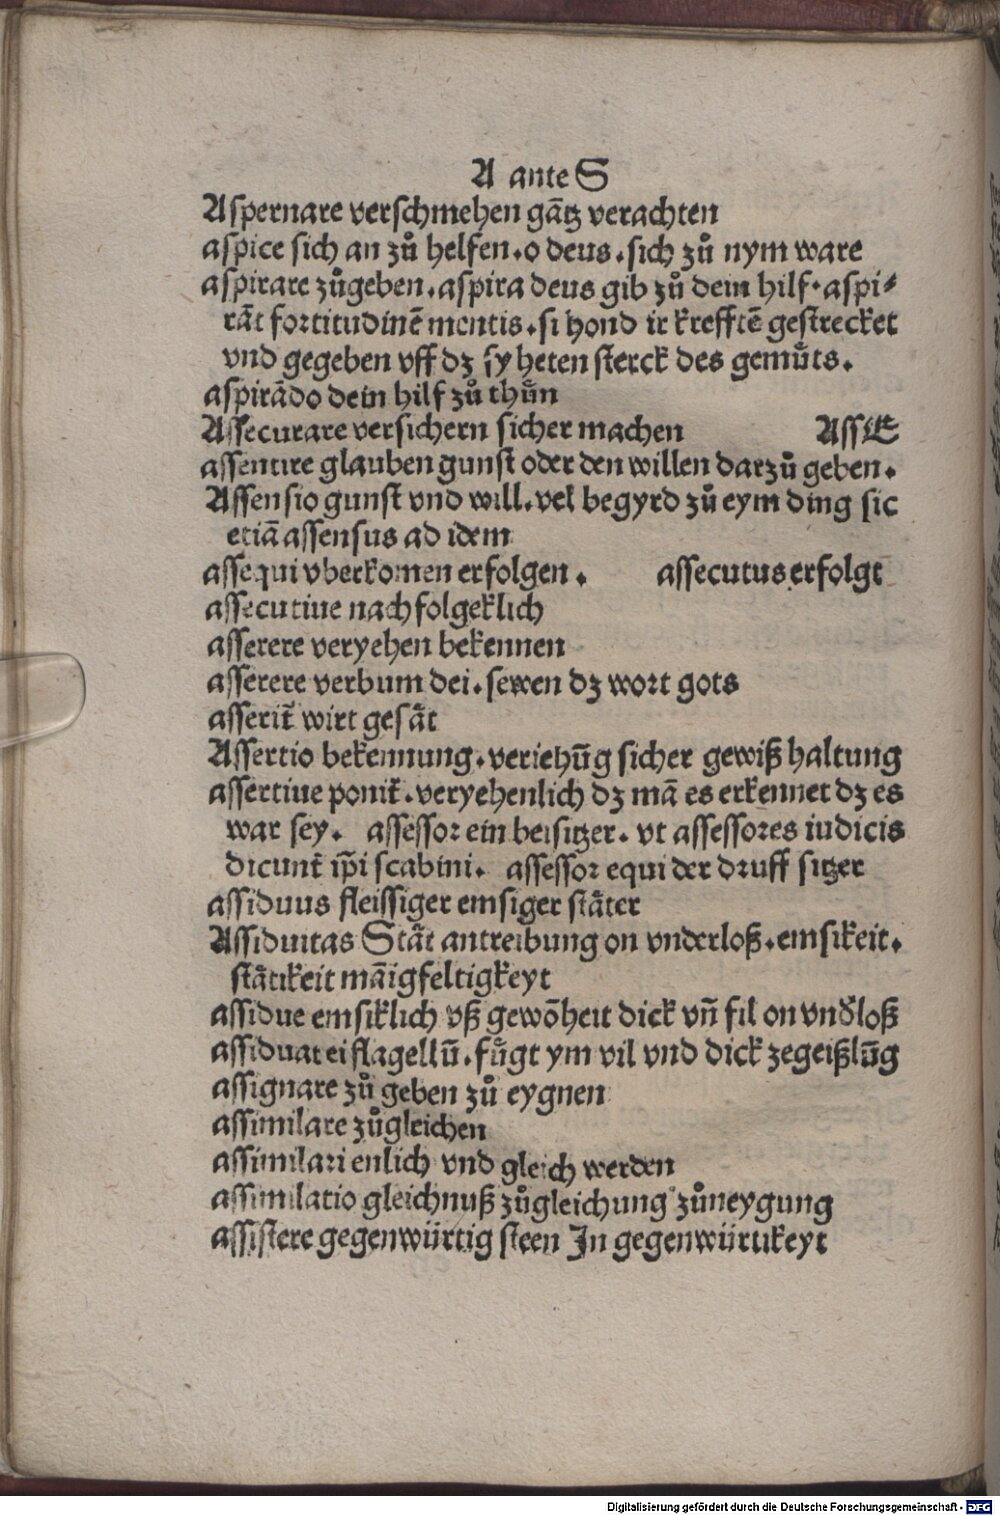 A ante S
Aspernare verschmehen gātz verachten
aspice sich an zů helfen. o deus. sich zů nym ware
aspirare zůgeben. aspira deus gib zů dein hilf. aspi⸗
rāt fortitudinē mentis. si hond ir krefftē gestrecket
vnd gegeben vff dz sy heten sterck des gemůts.
aspirādo dein hilf zů thůn
Assecurare versichern sicher machen AssE
assentire glauben gunst oder den willen darzů geben.
Assensio gunst vnd will. vel begyrd zů eym ding sic
etiā assensus ad idem
assequi vberkomen erfolgen. assecutus erfolgt
assecutiue nachfolgeklich
asserere veryehen bekennen
asserere verbum dei. sewen dz wort gots
asserit̄ wirt gesāt
Assertio bekennung. veriehūg sicher gewiß haltung
assertiue ponit̄. veryehenlich dz mā es erkennet dz es
war sey. assessor ein beisitzer. vt assessores iudicis
dicunt̄ ip̄i scabini. assessor equi der druff sitzer
assiduus fleissiger emsiger stāter
Assiduitas Stāt antreibung on vnderloß. emsikeit.
stātikeit māigfeltigkeyt
assidue emsiklich vß gewōheit dick vn̄ fil on vnd̕loß
assiduat ei flagellū. fůgt ym vil vnd dick zegeißlūg
assignare zů geben zů eygnen
assimilare zůgleichen
assimilari enlich vnd gleich werden
assimilatio gleichnuß zůgleichung zůneygung
assistere gegenwürtig steen In gegenwürtikeyt
Digitalisierung gefördert durch die Deutsche Forschungsgemeinschaft - DFG